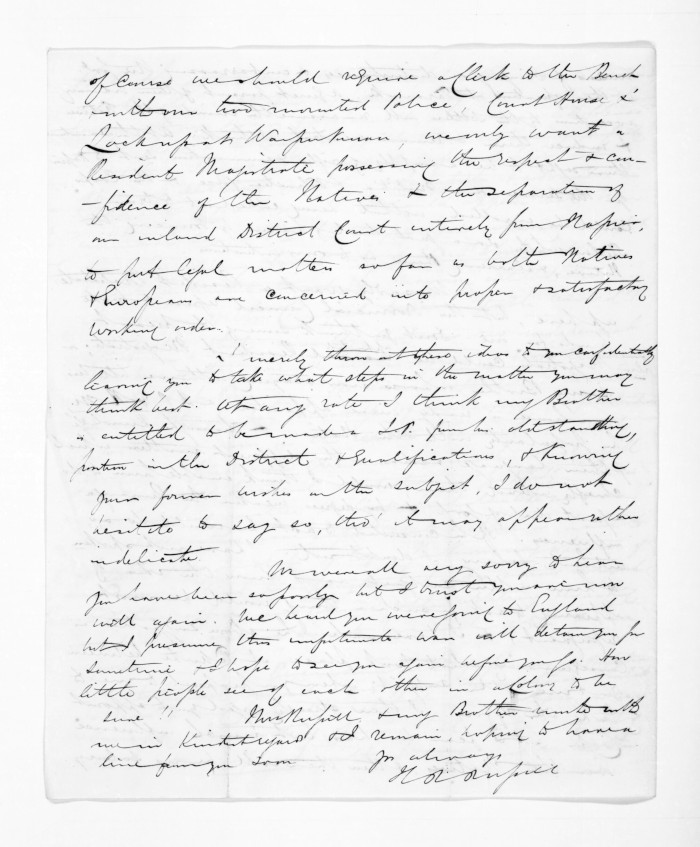 of course we should require a Clerk to the Bench
with one two mounted Police, Court House &
Lock up at Waipukurau, we only want a
Resident Magistrate possessing the respect & con-
-fidence of the Natives & the separation of
our inland District Court entirely from Napier,
to put legal matters so far as both Natives
& Europeans are concerned into proper & satisfactory
working order.
I merely throw out these ideas to you confidentially
leaving you to take what steps in the matter you may
think best. At any rate I think my Brother
is entitled to be made a J.P. from his old standing,
position in the District & qualifications, & knowing
your former wishes on the subject, I do not
hesitate to say so, tho' it may appear rather
indelicate
We were all very sorry to hear
you have been so poorly but I trust you are now
well again. We heard you were going to England
but I presume this unfortunate war will detain you for
sometime & I hope to see you again before you go. How
little people see of each other in a Colony to be
sure !! Mrs Russell & my Brother unite with
me in kindest regards & I remain, hoping to have a
line from you soon
Yrs always
H R Russell